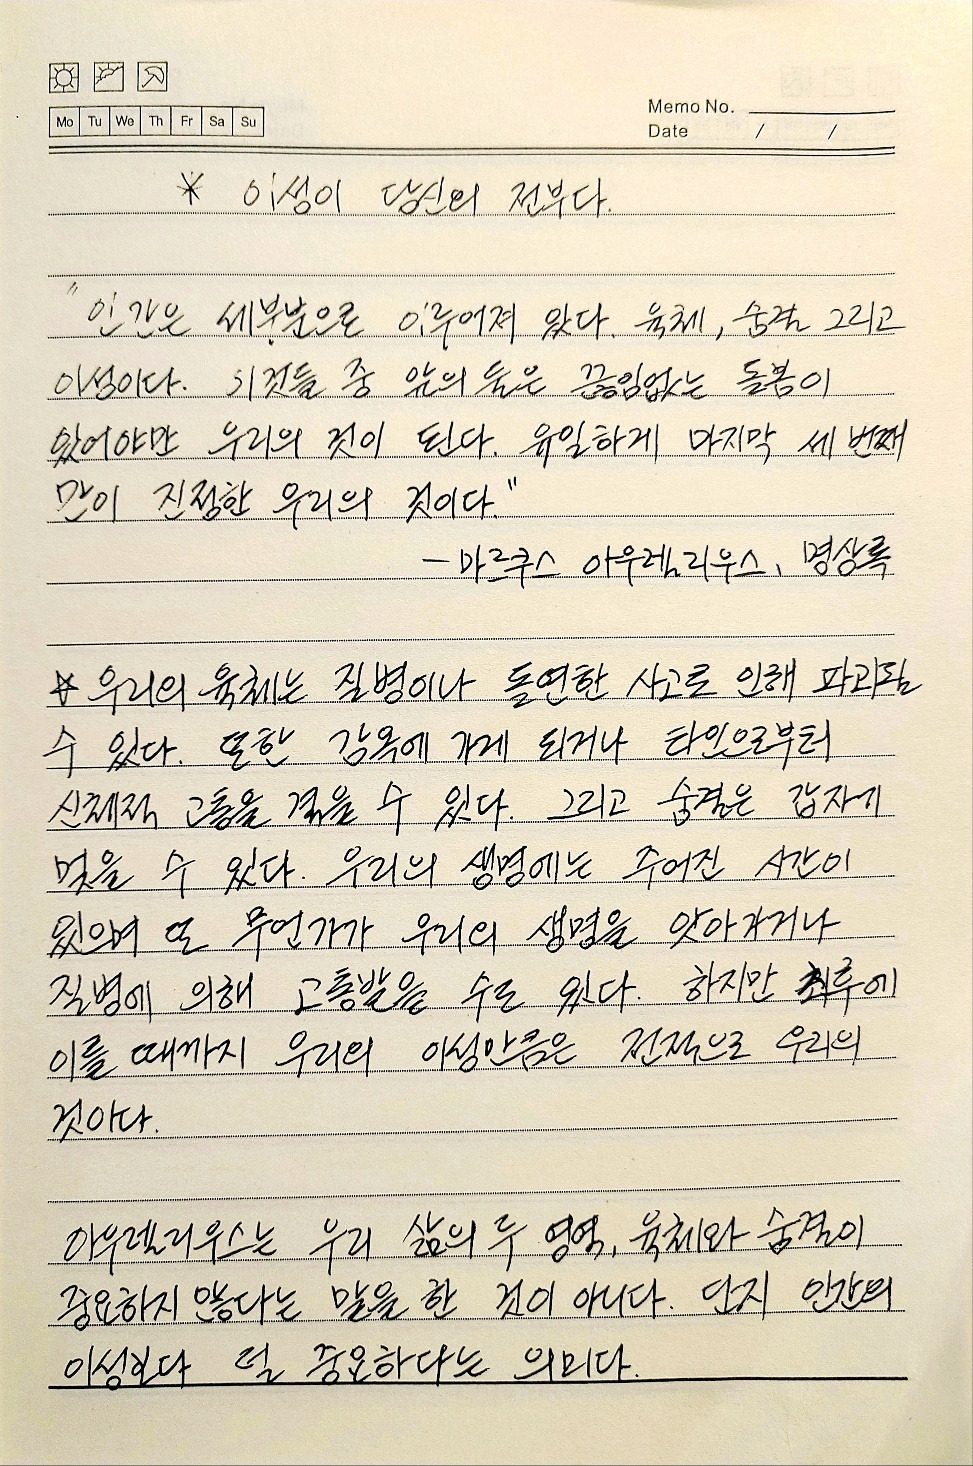 Mo Tu We Th Fr Sa Su
Memo No.
Date / /
* 이성이 당신의 전부다.
"인간은 세부분으로 이루어져 있다. 육체, 숨결 그리고
이성이다. 이것들 중 앞의 둘은 끊임없는 돌봄이
있어야만 우리의 것이 된다. 유일하게 마지막 세번째
만이 진정한 우리의 것이다."
- 마르쿠스 아우렐리우스, 명상록
* 우리의 육체는 질병이나 돌연한 사고로 인해 파괴될
수 있다. 또한 감옥에 가게 되거나 타인으로부터
신체적 고통을 겪을 수 있다. 그리고 숨결은 갑자기
멎을 수 있다. 우리의 생명에는 주어진 시간이
있으며 또 무언가가 우리의 생명을 앗아가거나
질병에 의해 고통받을 수도 있다. 하지만 최후에
이를 때까지 우리의 이성만큼은 전적으로 우리의
것이다.
아우렐리우스는 우리 삶의 두 영역, 육체와 숨결이
중요하지 않다는 말을 한 것이 아니다. 단지 인간의
이성보다 덜 중요하다는 의미다.